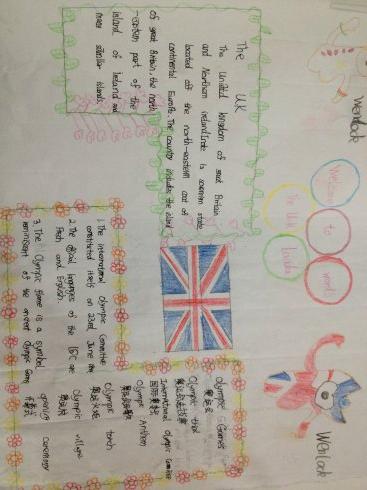 Wenlock
Welcome
to
world
The UK
The United kingdom of great Britain
and Northern Ireland
is
sovereign state
located off the north-eastern
continental Europe. The country includes the island
of great Britain, the north
-eastern part of the
island of Ireland and
many smaller islands.
Wenlock
1. The International Olympic Committee
constituted itself on 23rd June 1894
2. The official languages of the IOC are
French and English.
3. The Olympic flame is a symbol
reminiscent of the ancient Olympic Games
Olympic Games
奥运会
Olympic
International Olympic Committee
国际奥委会
Olympic Anthem
Olympic torch
奥运火炬
Olympic village
奥运村
opening ceremony
开幕式